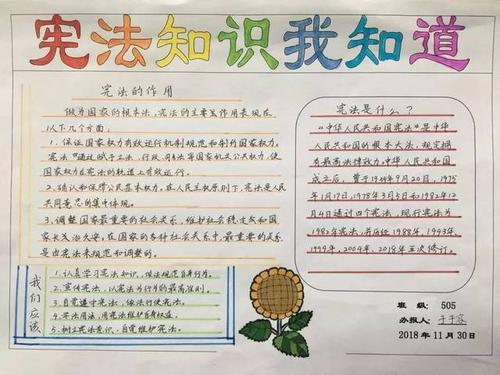 宪法知识我知道
宪法的作用
做为国家的根本法,宪法的主要发作用表现在
以下几个方面:
1、保证国家权力有效运行机制规范和制约国家权力。
宪法"通过赋予立法、行政、司法等国家机关公共权力,使
国家权力在宪法的轨道上有效运行。
2、确认和保障公民基本权力。在人民主权原则下,宪法是人民
共同意志的集中体现。
3、调整国家最重要的社会关系,维护社会稳定和国
家长治久安。在国家的各种社会关系中,最重要的关系
是由宪法来规范和调整的。
我们应该
1、认真学习宪法知识,依法规范自身行为。
2、宣传宪法,以宪法为行为的最高准则。
3、自觉遵守宪法,依法行使宪法。
4、学法用法,用宪法维护自身权益。
5、树立宪法意识,自觉维护宪法。
宪法是什么?
"中华人民共和国宪法"是中
华人民共和国的根本大法,规定拥
有最高法律效力。中华人民共和国
成立后,曾于1954年9月20日、1975
年1月17日、1978年3月5日和1982年12
月4日通过四个宪法,现行宪法为
1982年宪法,并历经1988年、1993年、
1999年、2004年、2018年五次修订。
班 级: 505
办报人:
2018年11月30日